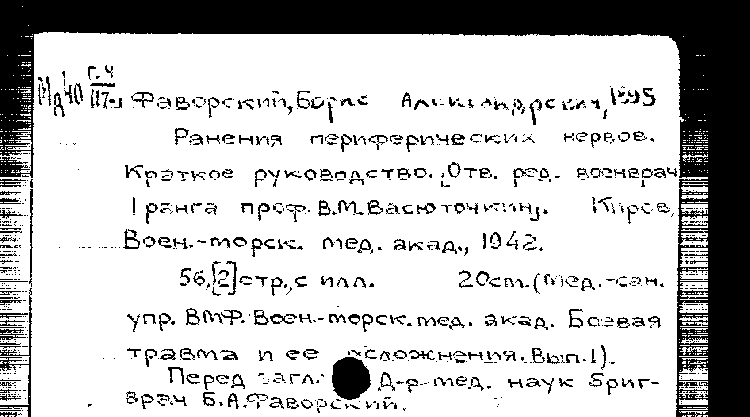 Г. 4
Мд40 117-1 Фаворский, Борис Александрович, 1895
Ранения периферических нервов.
Краткое руководство. [Отв. ред. военврач
I ранга проф. В.М.Васюточкин]. Киров,
Воен.-морск. мед. акад., 1942.
56,[2]стр., с илл. 20см.(Мед.-сан.
упр. ВМФ. Воен.-морск. мед. акад. Боевая
травма и ее осложнения. Вып.1).
Перед загл. Д-р мед. наук Бриг-
врач Б.А.Фаворский.